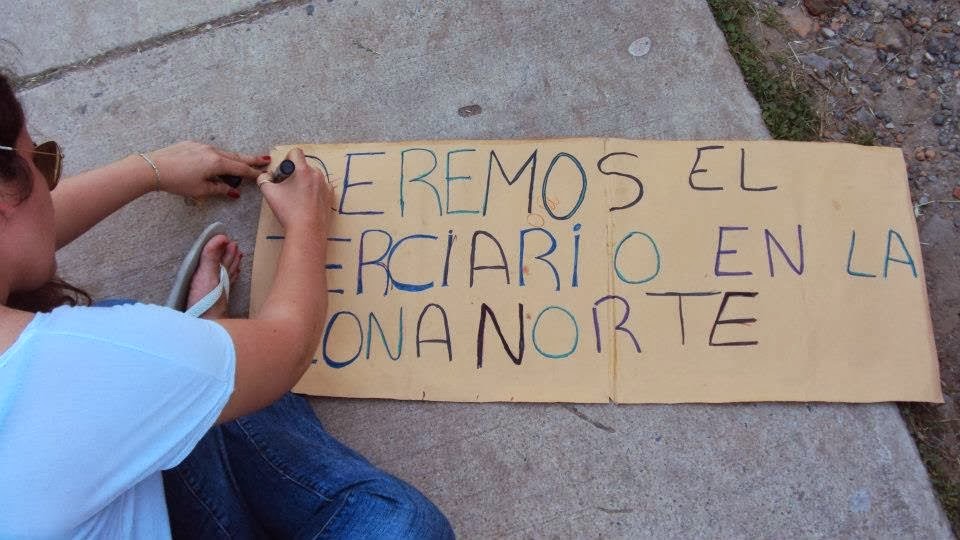 QUEREMOS EL
TERCIARIO EN LA
ZONA NORTE